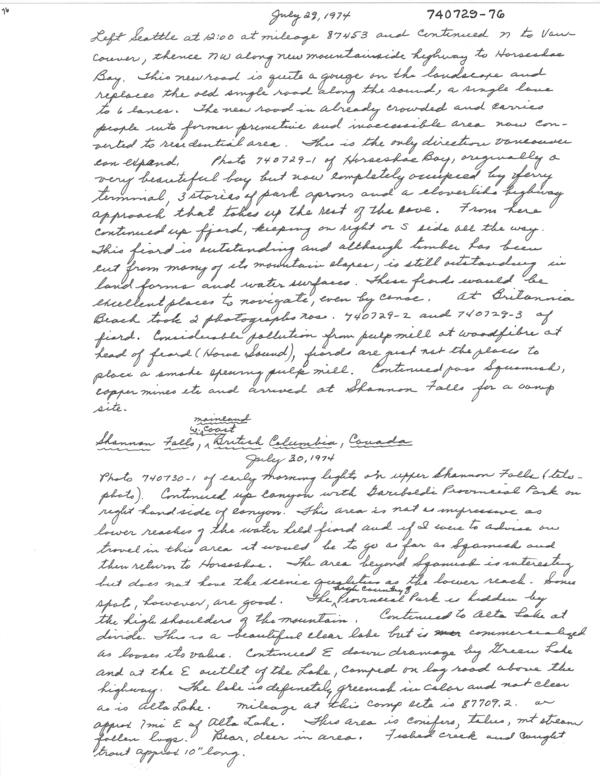 76
July 29, 1974 740729-76
Left Seattle at 12:00 at mileage 87453 and continued N to Van-
couver, thence NW along new mountainside highway to Horseshoe
Bay. This new road is quite a gouge on the landscape and
replaces the old single road along the sound, a single lane
to 6 lanes. The new road in already crowded and carries
people into former primitive and inaccessible area now con-
verted to residential area. This is the only direction Vancouver
can expand. Photo 740729-1 of Horseshoe Bay, originally a
very beautiful bay but now completely occupied by ferry
terminal, 3 stories of park aprons and a cloverlike highway
approach that takes up the rest of the cove. From here
continued up fjord, keeping on right or S side all the way.
This fiord is outstanding and although timber has been
cut from many of its mountain slopes, is still outstanding in
land forms and water surfaces. These fiords would be
excellent places to navigate, even by canoe. At Britannia
Beach took 2 photographs nos. 740729-2 and 740729-3 of
fiord. Considerable pollution from pulp mill at Woodfibre at
head of fiord (Howe Sound), fiords are just not the places to
place a smoke spewing pulp mill. Continued pass Squamish,
copper mines etc and arrived at Shannon Falls for a camp
site.
mainland
W. Coast
Shannon Falls, British Columbia, Canada
July 30, 1974
Photo 740730-1 of early morning lights on upper Shannon Falls (tele-
photo). Continued up canyon with Garibaldi Provincial Park on
right hand side of canyon. This area is not as impressive as
lower reaches of the water held fiord and if I were to advise on
travel in this area it would be to go as far as Sqamish and
then return to Horseshoe. The area beyond Sqamish is interesting
but does not have the scenic qualities as the lower reach. Some
high country of
spots, however, are good. The Provincial Park is hidden by
the high shoulders of the mountain. Continued to Alta Lake at
divide. This is a beautiful clear lake but is commercialized
as looses its value. Continued E down drainage by Green Lake
and at the E outlet of the Lake, camped on log road above the
highway. The lake is definetely greenish in color and not clear
as is Alta Lake. Mileage at this camp site is 87709.2. or
approx 7 mi E of Alta Lake. This area is conifers, talus, mt stream
fallen logs. Bear, deer in area. Fished creek and caught
trout approx 10" long.